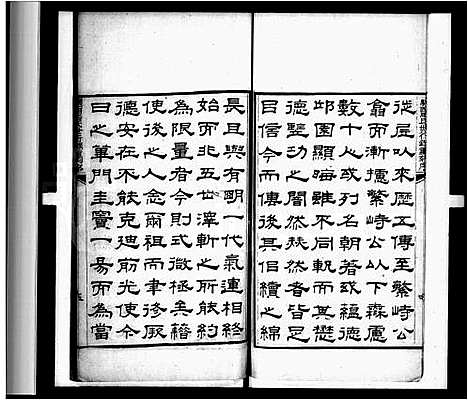 從居以來歷五傳至繁峙公
侖而漸擴繁峙公以下森處
數十人或列名朝著或蘊德
邱園顯晦雖不同軌而其懋
德堅功之間然後者皆足
目信今而傳後其目續之綿
長且與有朙一代氣運相終
始而非五世澤斬之所能約
為限量者今則式微極矣藉
使後之人念爾祖而聿後厥
德安在不能克迪前光使今
日之篳門圭竇一易而為當